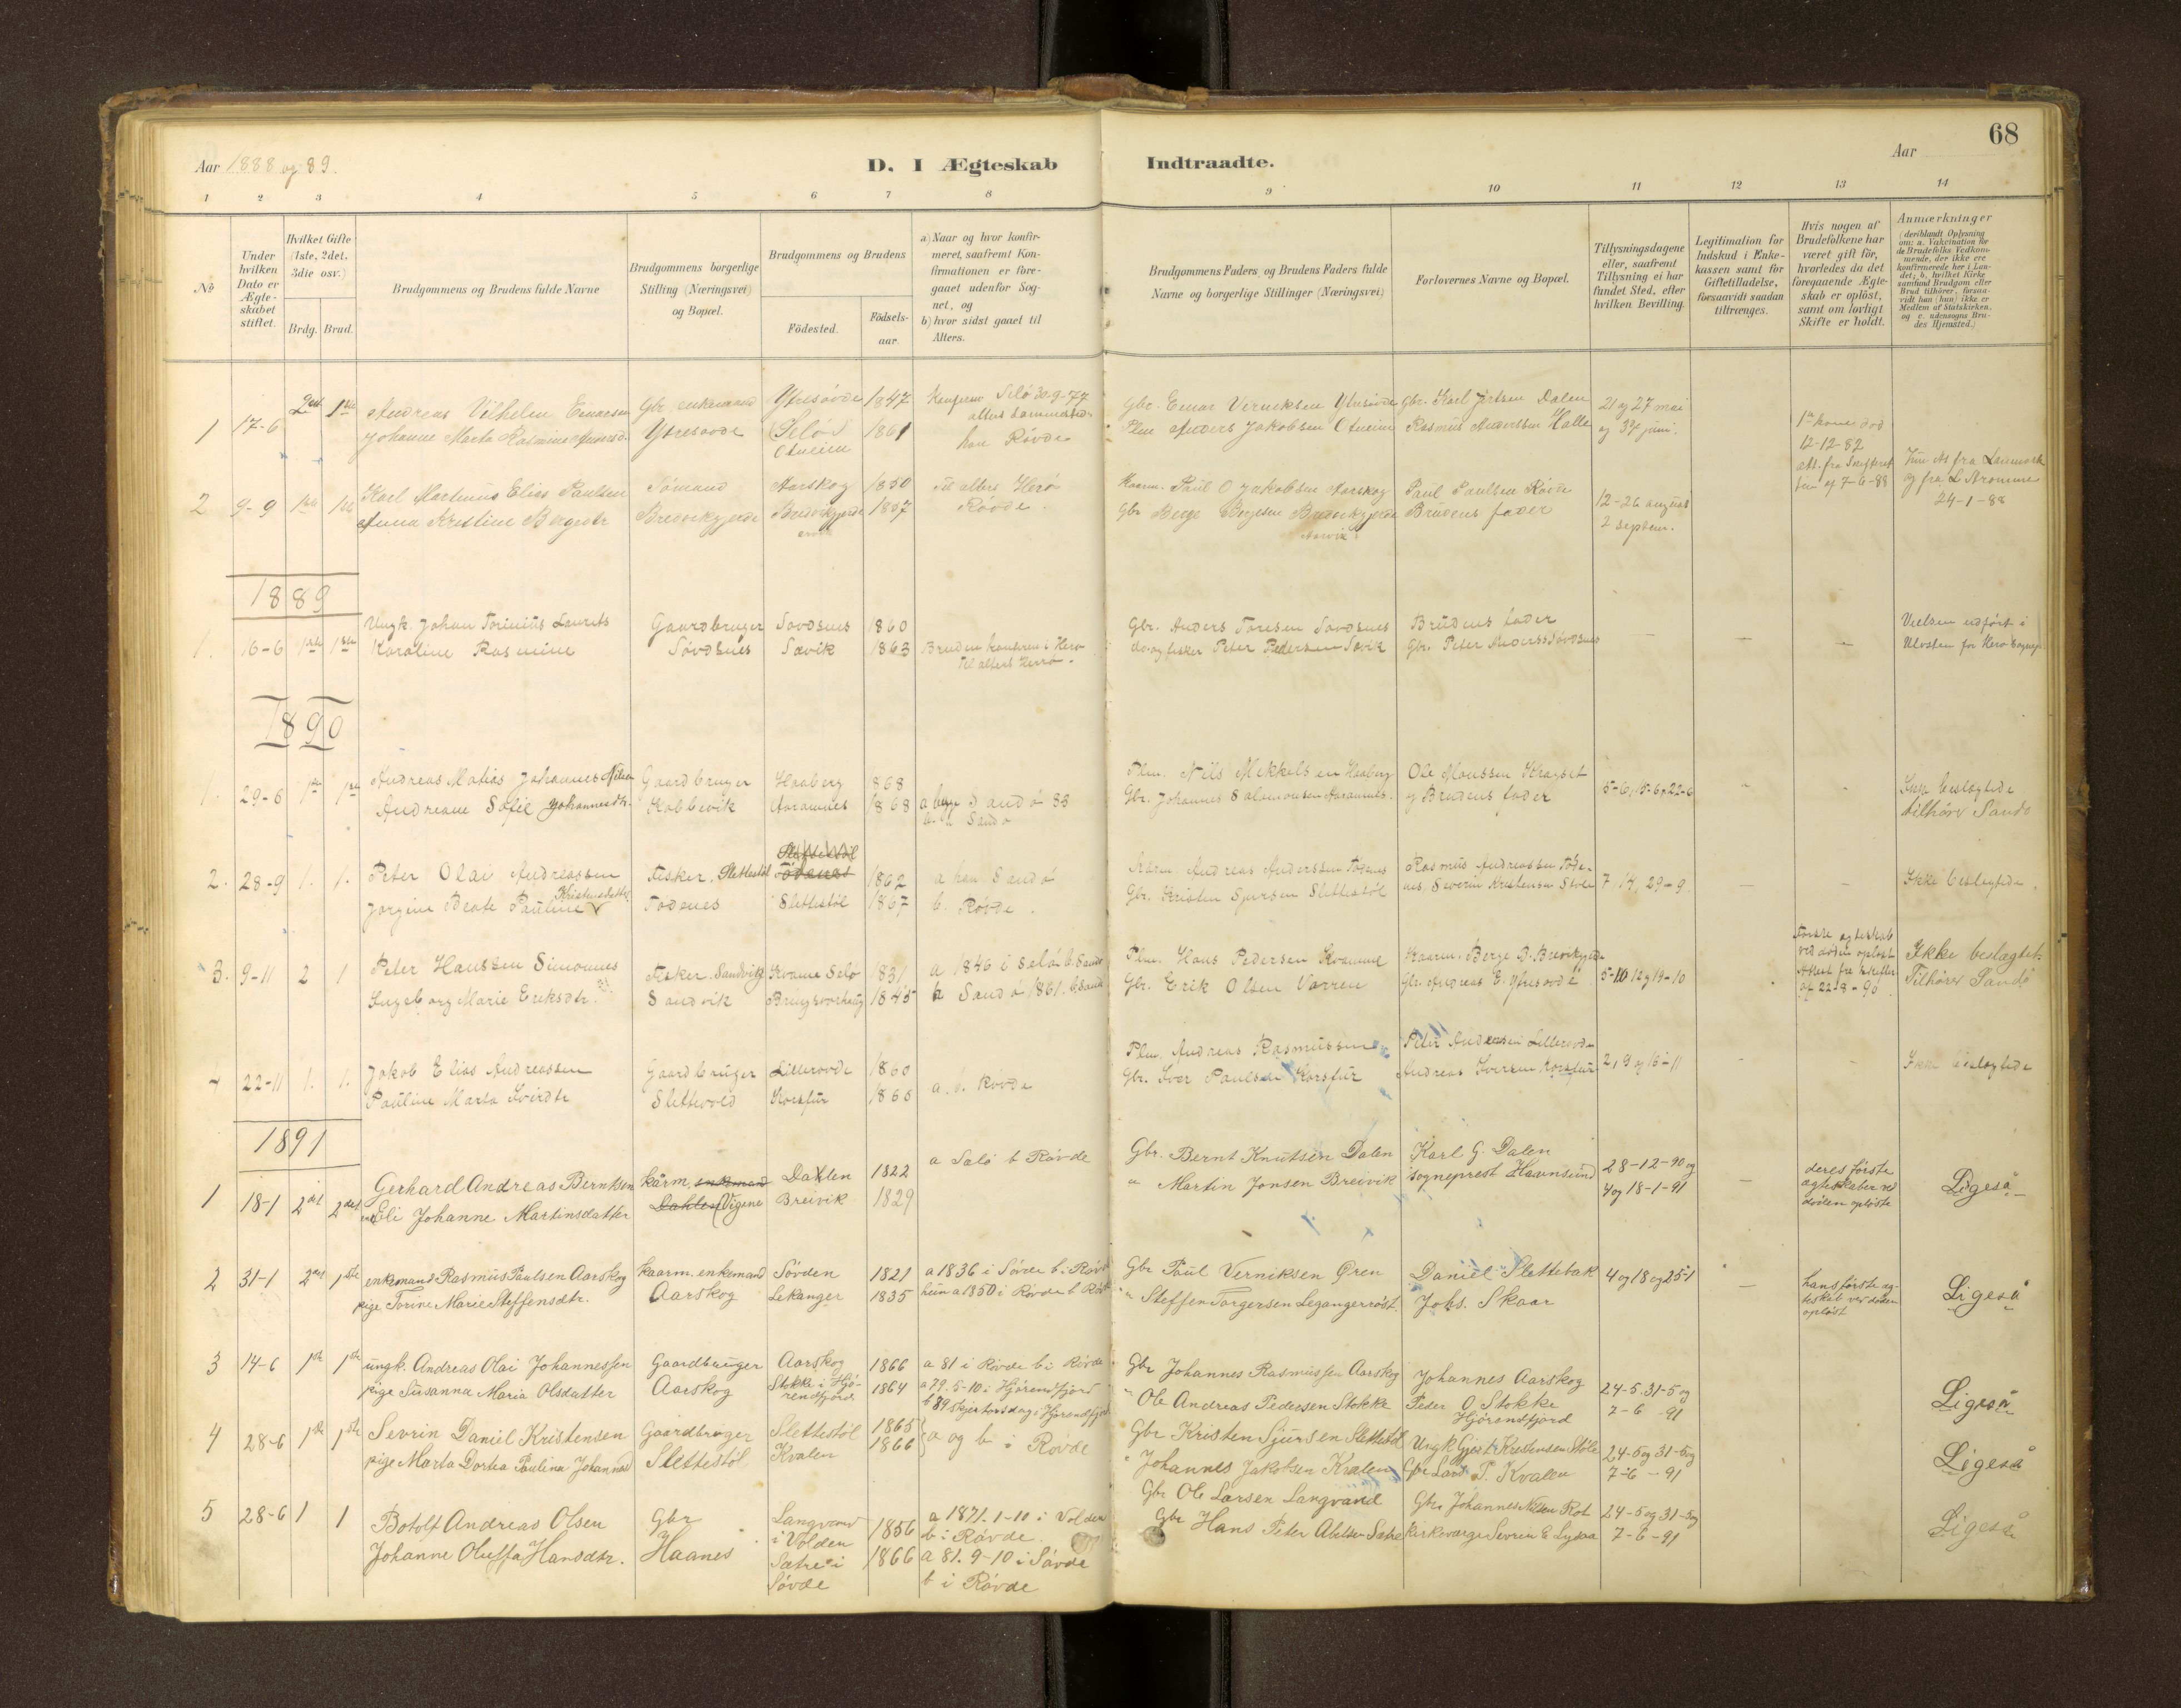 68
Aar 1888 og 89.
D. I Ægteskab Indtraadte.
Aar
1 2 3 4 5 6 7 8 9 10 11 12 13 14
No
Under hvilken Dato er Ægteskabet stiftet.
Hvilket Gifte (1ste, 2det, 3die osv.)
Brdg. Brud.
Brudgommens og Brudens fulde Navne
Brudgommens borgerlige Stilling (Næringsvei) og Bopæl.
Brudgommens og Brudens
Födested.
Födsels-aar.
a) Naar og hvor konfirmeret, saafremt Konfirmationen er foregaaet udenfor Sognet, og
b) hvor sidst gaaet til Alters.
Brudgommens Faders og Brudens Faders fulde Navne og borgerlige Stillinger (Næringsvei)
Forlovernes Navne og Bopæl.
Tillysningsdagene eller, saafremt Tillysning ei har fundet Sted, efter hvilken Bevilling.
Legitimation for Indskud i Enkekassen samt for Giftetilladelse, forsaavidt saadan tiltrænges.
Hvis nogen af Brudefolkene har været gift för, hvorledes da det foregaaende Ægteskab er oplöst, samt om lovligt Skifte er holdt.
Anmærkninger (deriblandt Oplysning om: a. Vakcination for de Brudefolks Vedkommende, der ikke ere konfirmerede her i Landet; b. hvilket Kirkesamfund Brudgom eller Brud tilhörer, forsaavidt han (hun) ikke er Medlem af Statskirken, og c. udensogns Brudes Hjemsted.)
1 17-6 2det 1ste Andreas Vilhelm Einarsen Gbr. enkemand Ytresövde 1847 Konfirm Selö 30.9-77 Gbr. Einar Verniksen Ytresövde Gbr. Karl Dalen 21 og 27 mai
Johanne Marta Rasmine Ytresovde Selö 1861 han Rövde Plm Anders Jakobsen Rasmus Anderssen Halle og 3die juni.
1ste kone död 12-12-82
af 7-6-88
2 9-9 1ste 1ste Karl Martinus Elias Paulsen Sömand Aarskog 1850 til alters Herö Kaarm. Paul O Jakobsen Aarskog Paul Paulsen Rövde 12-26 august
Anna Kristine Bergsdtr Bredvekgjerde 1857 Rövde. Gbr Berge Bergesen Brudens fader 2 septem.
24-1-88
1889
1. 16-6 1ste 1ste Ungk. Johan Torinius Laurits Gaardbruger Sovdsnes 1860 Gbr. Anders Toresen Sovdsnes Brudens fader
Karoline Rasmine Sövdsnes Sævik 1863 Bruden konfirm i Herö do. og fisker Peter Pedersen Sævik Gbr. Peter Anderss Sövdsnes
til alters Herö.
Vielsen udfört i Ulvsten for Herö
1890
1. 29-6 1ste 1ste Andreas Matias Johannes Nilsen Gaardbruger Haaberg 868 Plm. Nils Mekkelsen Haaberg Ole Monssen Kragset 8-6, 15-6, 22-6
Andreane Sofie Johannesdtr. Kobbevik Aaramnes 1868 a begge Sandö 83 Gbr. Johannes Salomonsen Aaramnes. og Brudens fader
b. i Sandö
Ikke beslægtede tilhörer Sandö
2. 28-9 1. 1. Peter Olai Andreassen Fisker. Slettestöl 1862 a han Sandö Kårm. Andreas Anderssen Todenes Rasmus Andreassen Tode-
Jorgine Beate Pauline Kristensdatter Todenes Slettestöl 1867 b. Rövde. Gbr. Kristen Sjursen Slettestöl nes, Severin Kristensen Stöle 7, 14, 29-9.
Ikke beslegtede.
3. 9-11 2 1 Peter Hanssen Simonnes Fisker. Sandvik Kvame Selö 1831 a 1846 i Selö b. Sandö Plm. Hans Pedersen Kvamme Kaarm. Berge B. 5-10 12 og 19-10
Ingeborg Marie Eriksdtr. Sandvik 1845 a Sandö 1861. b. Sandö Gbr. Erik Olsen Varren Gbr. Andreas E. Ytresovde
Forste egteskab ved döden oplöst Attest fra skifter. af 22-8-90
Ikke beslægtet. Tilhörer Sandö
4 22-11 1. 1. Jakob Elias Andreassen Gaardbruger Lillesovde 1860 Plm. Andreas Rasmussen Peter Andersen Lillesovde 2, 9 og 16-11
Pauline Marta Ivirdtr Slettevold Korsfur 1865 a. b. Rovde Gbr. Iver Paulsen Korsfur Andreas Iversen Korsfur
Ikke beslegtede
1891
1 18-1 2det 2det Gerhard Andreas Berntsen kårm. enkemand Dahlen 1822 a Selö b Rövde Gbr. Bernt Knutsen Dalen Karl G. Dalen 28-12-90 og
Eli Johanne Martinsdatter Dahlen (Vigene Breivik 1829 " Martin Jonsen Breivik sogneprest Haarnsund 4 og 18-1-91
deres förste ægteskaber ved döden oplöste
Ligeså
2 31-1 2det 1ste enkemand Rasmus Paulsen Aarskog kaarm. enkemand Sövden 1821 a 1836 i Sövde b. i Rövde Gbr Paul Verniksen Ören Daniel Slettebak 4 og 18 og 25-1
pige Torine Marie Steffensdtr. Aarskog Lekanger 1835 hun a 1850 i Rövde b Rövde " Steffen Torgersen Legangerröst Johs. Skaar
hans förste ægteskab ved döden oplöst
Ligeså
3 14-6 1ste 1ste ungk. Andreas Olai Johannessen Gaardbruger Aarskog 1866 a 81 i Rövde b i Rövde Gbr Johannes Rasmussen Aarskog Johannes Aarskog 24-5. 31-5 og
pige Susanna Maria Olsdatter Aarskog Stokke i Hjörendfjord 1864 a 79. 5-10 i Hjörendfjord " Ole Andreas Pedersen Stokke Peder O. Stokke 7-6-91
b 89 skjertorsdag i Hjörendfjord Hjörendfjord
Ligeså
4 28-6 1ste 1ste Sevrin Daniel Kristensen Gaardbruger Slettestöl 1865 a og b i Rövde Gbr Kristen Sjursen Slettestöl Ungk Gjert Kristensen Stöle 24-5 og 31-5 og
pige Marta Dortea Paulina Johannesd Slettestöl Kvalen 1866 " Johannes Jakobsen Kvalen Gbr Lars P. Kvalen 7-6-91
Ligeså
5 28-6 1 1 Botolf Andreas Olsen Gbr Langvand i Volden 1856 a 1871. 1-10 i Volden Gbr Ole Larsen Langvand Gbr. Johannes Nilsen Rot 24-5 og 31-5 og
b i Rövde
Johanne Oluffa Hansdtr. Haanes Sætre i Sövde 1866 a 81. 9-10 i Sövde Gbr Hans Peter Abelsen Sætre Kirkeværge Sevrin E. 7-6-91
b i Rövde
Ligeså